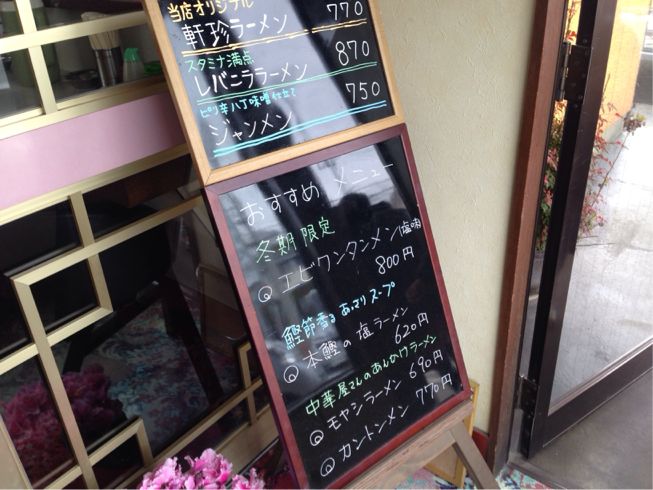 当店オリジナル
軒珍ラーメン 770
スタミナ満点
レバニララーメン 870
ピリ辛八丁味噌仕立て
ジャンメン 750
おすすめ メニュー
冬期限定
エビワンタンメン(塩味)
800円
鰹節香るあっさりスープ
本鰹の塩ラーメン
620円
中華屋さんのあんかけラーメン
モヤシラーメン 690円
カントンメン 770円